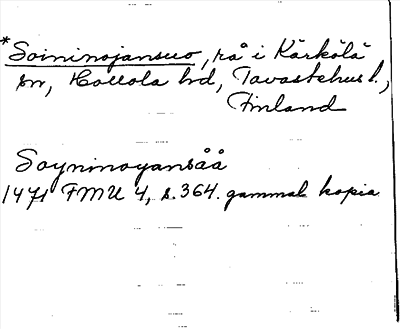 *Soininojansuo, rå i Kärkölä
sn, Hollola hd, Tavastehus l.,
Finland
Soyninoyansåå
1471 FMU 4, s. 364. gammal kopia